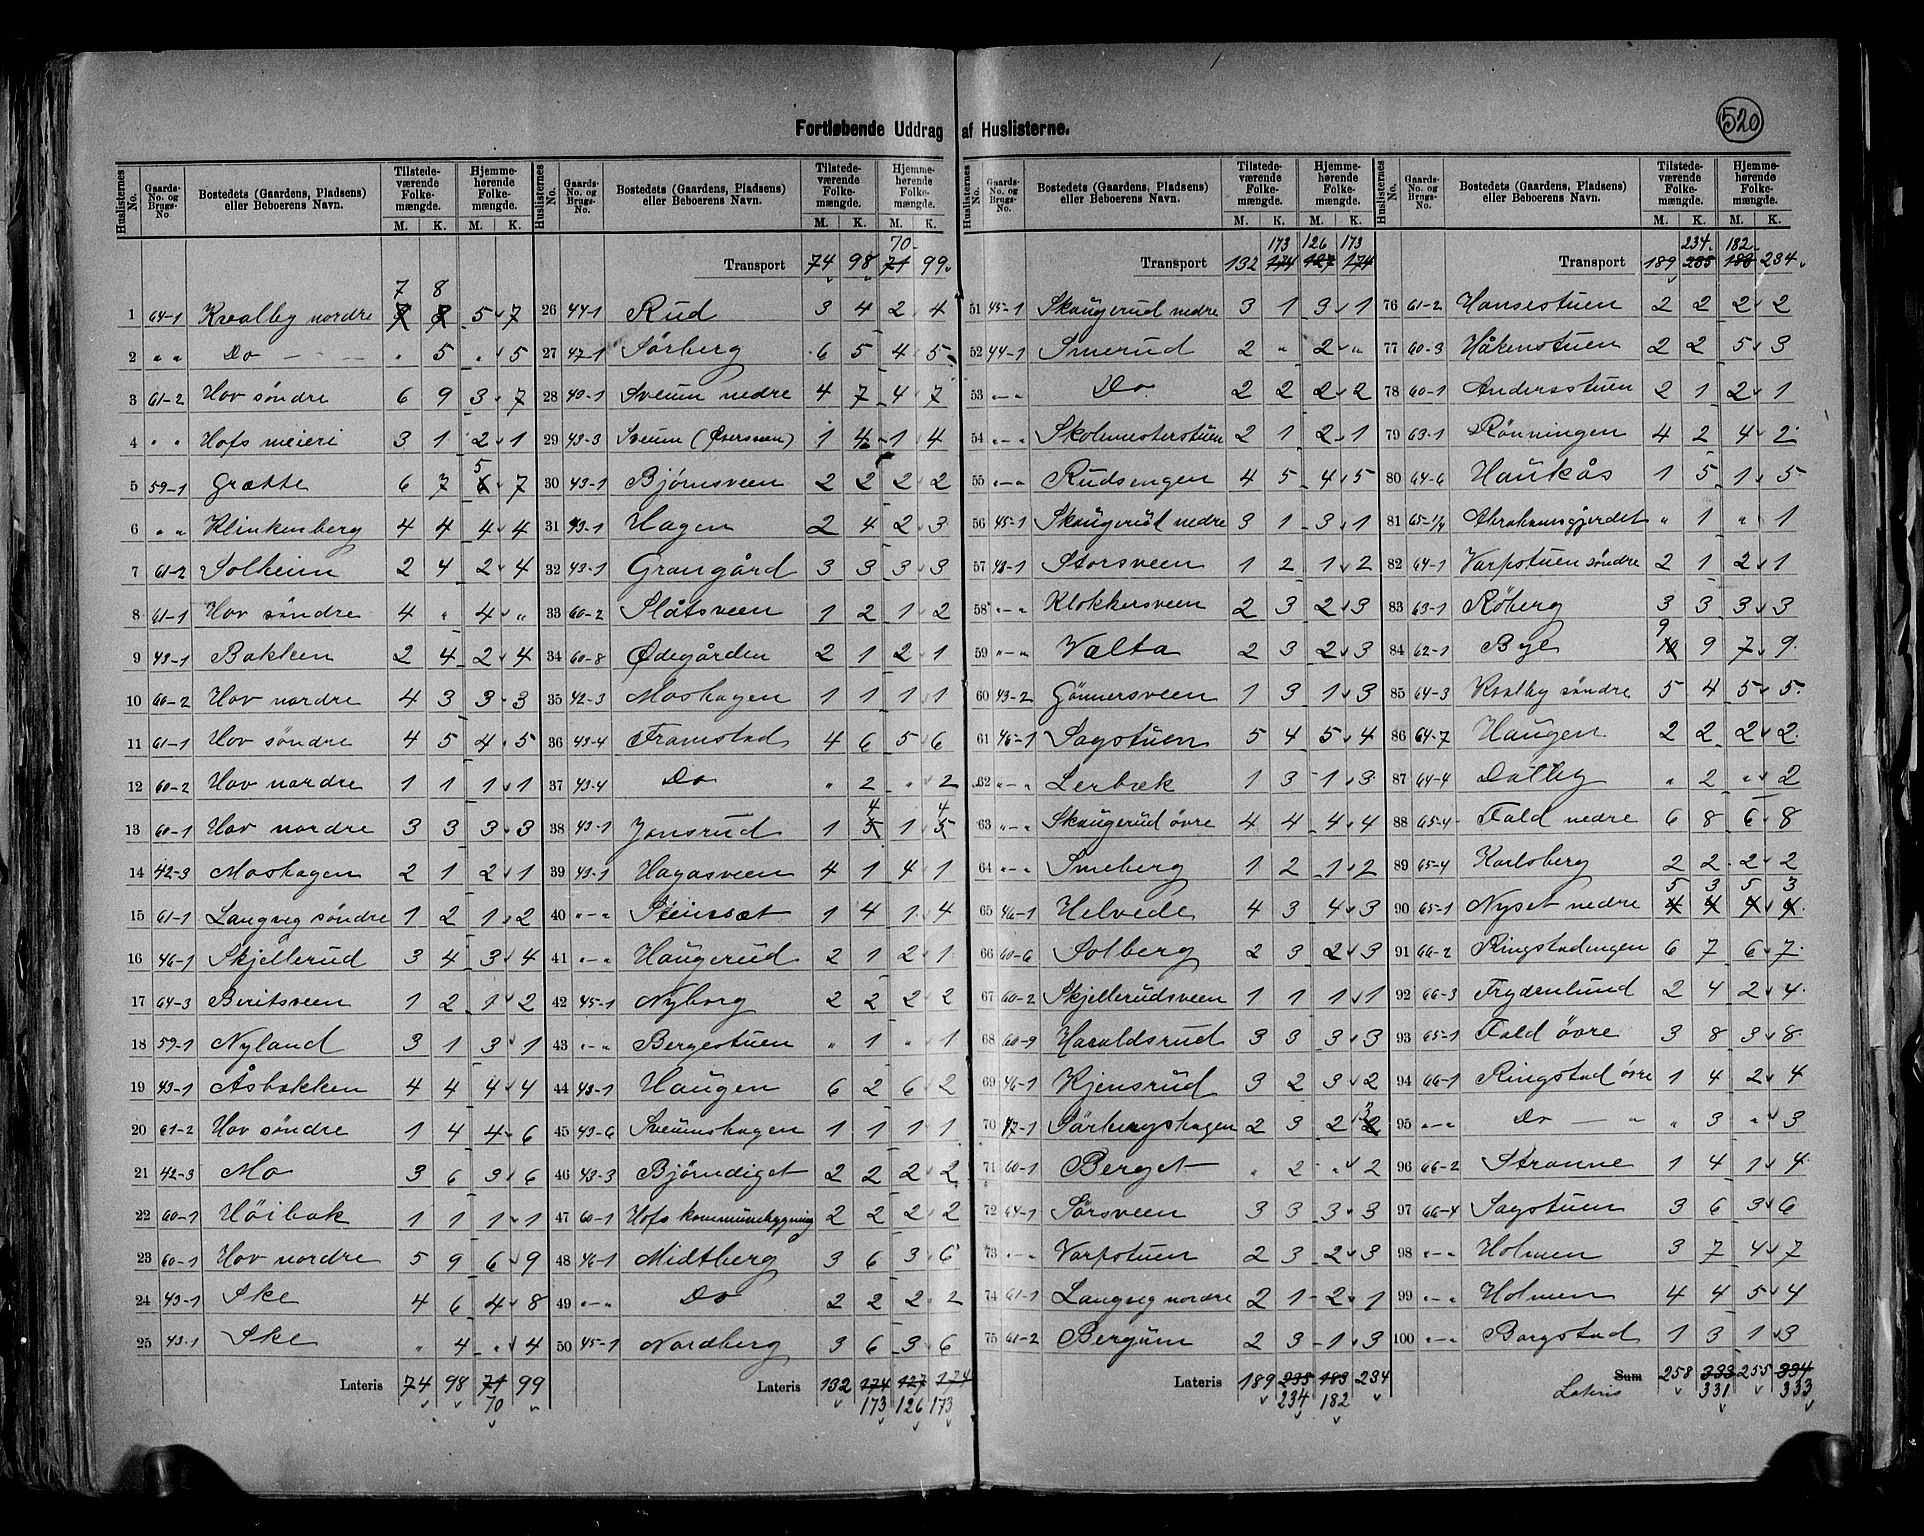 520
Fortløbende Uddrag af Huslisterne.
Huslisternes No. | Gaards-No. og Brugs-No. | Bostedets (Gaardens, Pladsens) eller Beboerens Navn. | Tilstedeværende Folkemængde. M. K. | Hjemmehørende Folkemængde. M. K.
1 64-1 Kvalby nordre 7 8 5 7
2 „ „ Do „ 5 „ 5
3 61-2 Hov søndre 6 9 3 7
4 „ „ Hofs meieri 3 1 2 1
5 59-1 Grætte 6 7 6 5 7
6 „ „ Klinkenberg 4 4 4 4
7 61-2 Solheim 2 4 2 4
8 61-1 Hov søndre 4 „ 4 „
9 43-1 Bakken 2 4 2 4
10 60-2 Hov nordre 4 3 3 3
11 61-1 Hov søndre 4 5 4 5
12 60-2 Hov nordre 1 1 1 1
13 60-1 Hov nordre 3 3 3 3
14 42-3 Moshagen 2 1 2 1
15 61-1 Langvig søndre 1 2 1 2
16 46-1 Skjellerud 3 4 3 4
17 64-3 Beritsveen 1 2 1 2
18 59-1 Nyland 3 1 3 1
19 43-1 Åsbakken 4 4 4 4
20 61-2 Hov søndre 1 4 4 6
21 42-3 Mo 3 6 3 6
22 60-1 Høibak 1 1 1 1
23 60-1 Hov nordre 5 9 6 9
24 43-1 Ske 4 6 4 8
25 43-1 Ske „ 4 „ 4
Lateris 74 98 71 70 99
Transport 74 98 71 70 99
26 44-1 Rud 3 4 2 4
27 47-1 Sørberg 6 5 4 5
28 43-1 Sveum nedre 4 7 4 7
29 43-3 Sveum (Øversveen) 1 4 1 4
30 43-1 Bjørnsveen 2 2 2 2
31 43-1 Hagen 2 4 2 3
32 43-1 Grangård 3 3 3 3
33 60-2 Slåtsveen 1 2 1 2
34 60-8 Ødegården 2 1 2 1
35 42-3 Moshagen 1 1 1 1
36 43-4 Framstad 4 6 5 6
37 43-4 Do „ 2 „ 2
38 43-1 Jonsrud 1 5 4 1 5 4
39 43-1 Hagasveen 4 1 4 1
40 „-„ Steinsæt 1 4 1 4
41 „-„ Haugerud 2 1 2 1
42 45-1 Nyborg 2 2 2 2
43 „-„ Bergestuen „ 1 „ 1
44 43-1 Haugen 6 2 6 2
45 43-6 Sveumshagen 1 1 1 1
46 43-3 Bjørndiget 2 2 2 2
47 60-1 Hofs kommunebygning 2 2 2 2
48 46-1 Midtberg 3 6 3 6
49 „-„ Do 2 2 2 2
50 45-1 Nordberg 3 6 3 6
Lateris 132 174 173 127 126 174 173
Transport 132 174 173 127 126 174 173
51 45-1 Skaugerud nedre 3 1 3 1
52 44-1 Smerud 2 „ 2 „
53 „-„ Do 2 2 2 2
54 „-„ Skolmesterstuen 2 1 2 1
55 „-„ Rudsengen 4 5 4 5
56 45-1 Skaugerud nedre 3 1 3 1
57 43-1 Storsveen 1 2 1 2
58 „-„ Klokkersveen 2 3 2 3
59 „-„ Vælta 2 3 2 3
60 43-2 Gunnersveen 1 3 1 3
61 46-1 Sagstuen 5 4 5 4
62 „-„ Lerbæk 1 3 1 3
63 „-„ Skaugerud øvre 4 4 4 4
64 „-„ Smeberg 1 2 1 2
65 46-1 Helvede 4 3 4 3
66 60-6 Solberg 2 3 2 3
67 60-2 Skjellerudsveen 1 1 1 1
68 60-9 Haraldsrud 3 3 3 3
69 46-1 Kjensrud 3 2 3 2
70 47-1 Sørbergshagen 2 3 2 2 3
71 60-1 Berget „ 2 „ 2
72 64-1 Sørsveen 3 3 3 3
73 „-„ Varpstuen 2 3 2 3
74 61-1 Langvig nordre 2 1 2 1
75 61-2 Bergum 2 3 1 3
Lateris 189 235 234 183 182 234
Transport 189 235 234 183 182 234
76 61-2 Hansestuen 2 2 2 2
77 60-3 Håkenstuen 2 2 5 3
78 60-1 Andersstuen 2 1 2 1
79 63-1 Rönningen 4 2 4 2
80 64-6 Haukås 1 5 1 5
81 65-1/4 Abrahamsgjerdet „ 1 „ 1
82 64-1 Varpstuen søndre 2 1 2 1
83 63-1 Røberg 3 3 3 3
84 62-1 Bye 10 9 9 7 9
85 64-3 Kvalby søndre 5 4 5 5
86 64-7 Haugen 2 2 2 2
87 64-4 Dalby „ 2 „ 2
88 65-4 Fald nedre 6 8 6 8
89 65-4 Karlsberg 2 2 2 2
90 65-1 Nyset nedre 4 5 4 3 4 5 4 3
91 66-2 Ringstadengen 6 7 6 7
92 66-3 Frydenlund 2 4 2 4
93 65-1 Fald øvre 3 8 3 8
94 66-1 Ringstad øvre 1 4 2 4
95 „-„ Do „ 3 „ 3
96 66-2 Stranne 1 4 1 4
97 66-4 Sagstuen 3 6 3 6
98 „-„ Holmen 3 7 4 7
99 „-„ Holmen 4 4 5 4
100 „-„ Borgstad 1 3 1 3
Sum Lateris 258 333 331 255 334 333